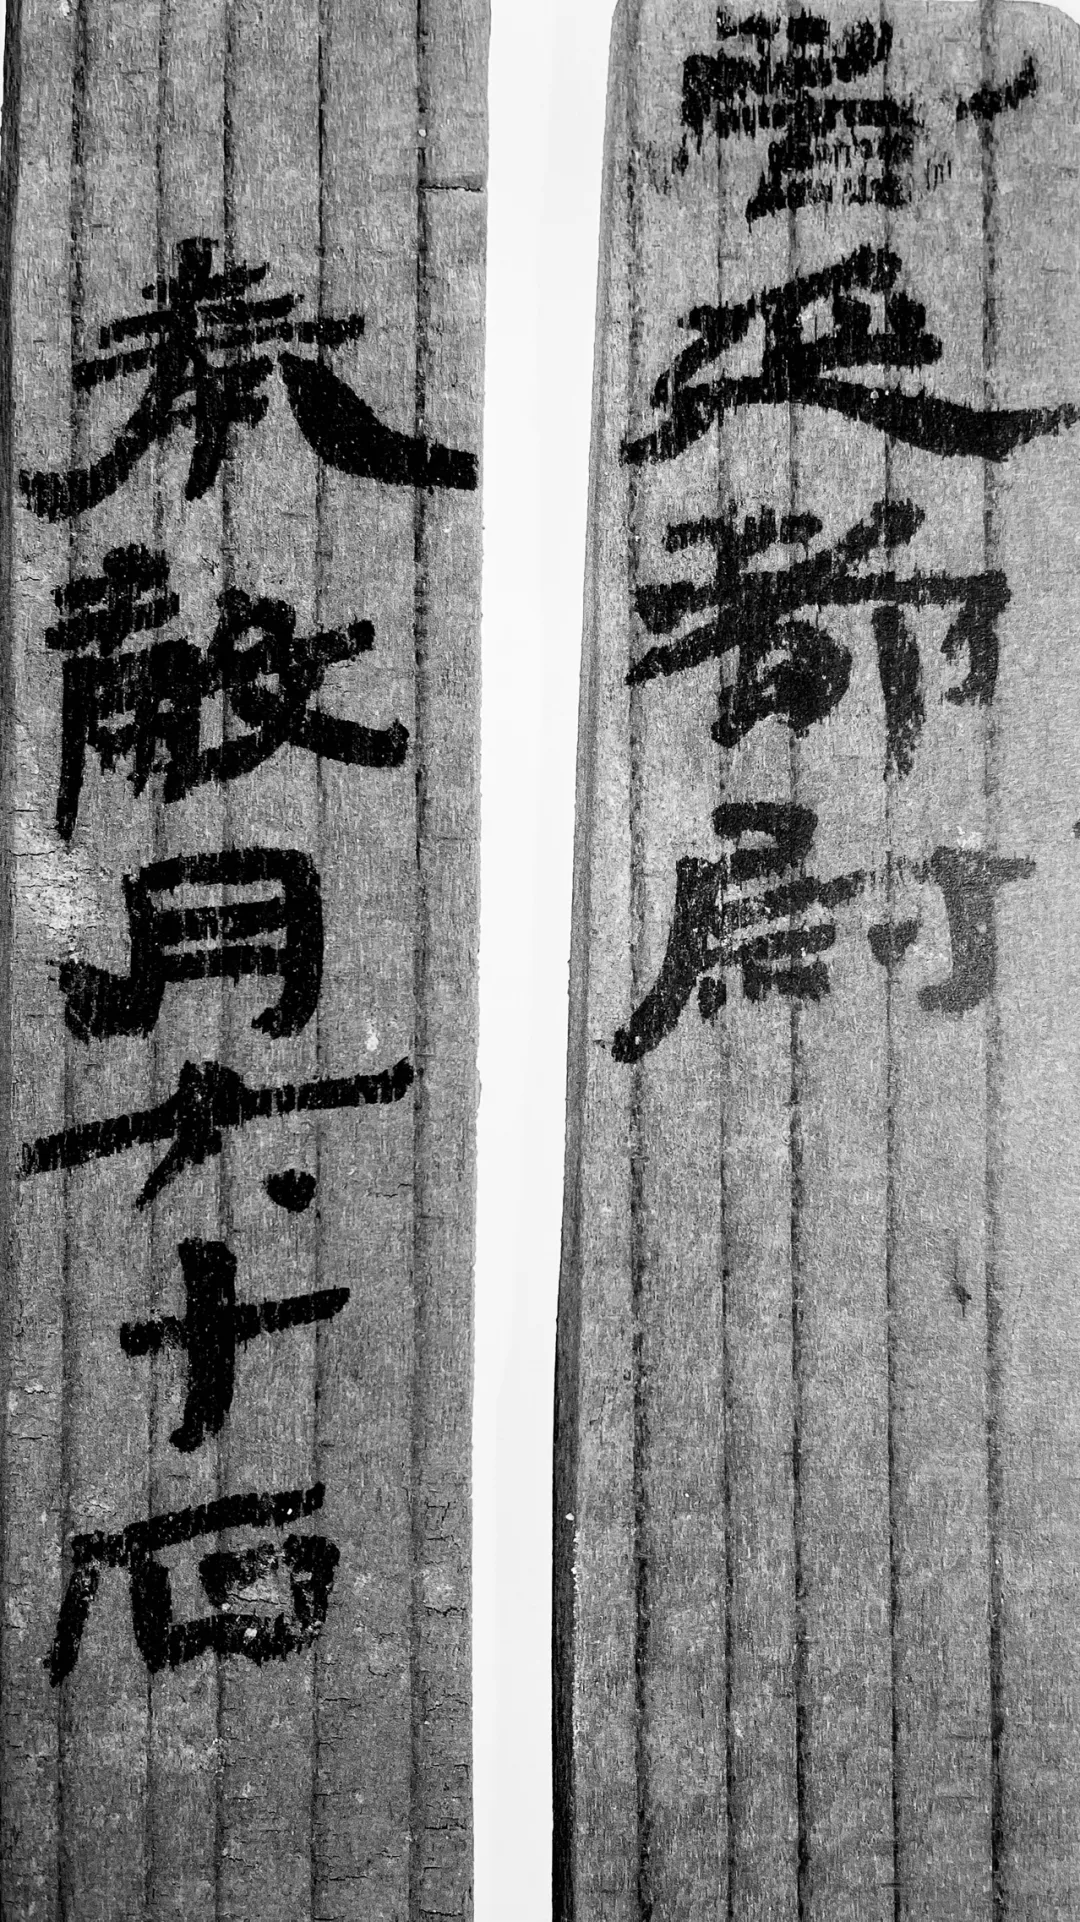 居延都尉
奉穀月六十石